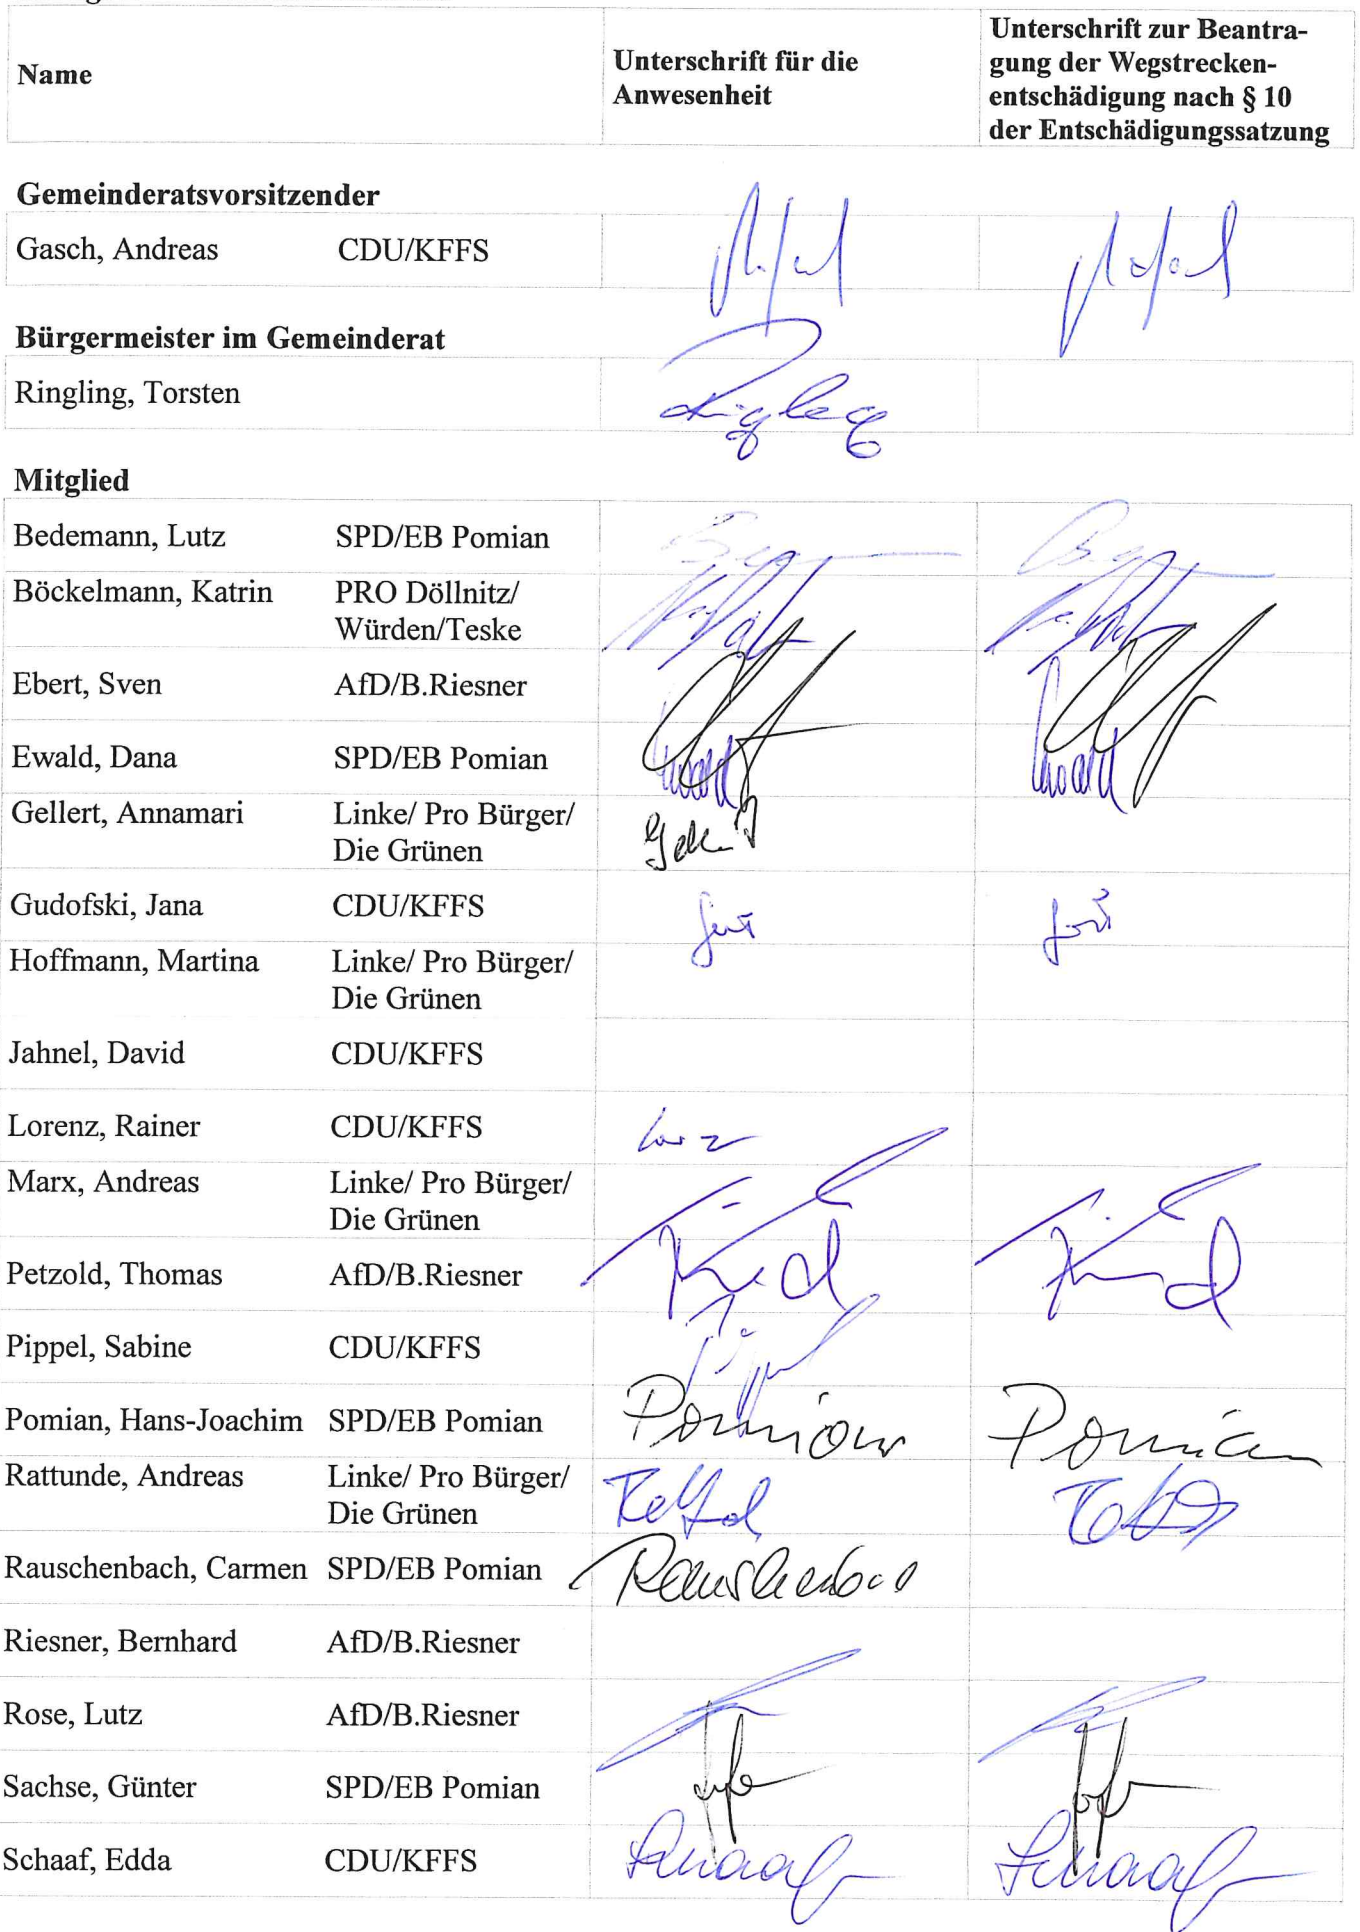 Name
Unterschrift für die
Anwesenheit
Unterschrift zur Beantra-
gung der Wegstrecken-
entschädigung nach § 10
der Entschädigungssatzung
Gemeinderatsvorsitzender
Gasch, Andreas CDU/KFFS
Bürgermeister im Gemeinderat
Ringling, Torsten
Mitglied
Bedemann, Lutz SPD/EB Pomian
Böckelmann, Katrin PRO Döllnitz/
Würden/Teske
Ebert, Sven AfD/B.Riesner
Ewald, Dana SPD/EB Pomian
Gellert, Annamari Linke/ Pro Bürger/
Die Grünen
Gudofski, Jana CDU/KFFS
Hoffmann, Martina Linke/ Pro Bürger/
Die Grünen
Jahnel, David CDU/KFFS
Lorenz, Rainer CDU/KFFS
Marx, Andreas Linke/ Pro Bürger/
Die Grünen
Petzold, Thomas AfD/B.Riesner
Pippel, Sabine CDU/KFFS
Pomian, Hans-Joachim SPD/EB Pomian Pomian Pomian
Rattunde, Andreas Linke/ Pro Bürger/
Die Grünen
Rauschenbach, Carmen SPD/EB Pomian
Riesner, Bernhard AfD/B.Riesner
Rose, Lutz AfD/B.Riesner
Sachse, Günter SPD/EB Pomian
Schaaf, Edda CDU/KFFS Schaaf Schaaf